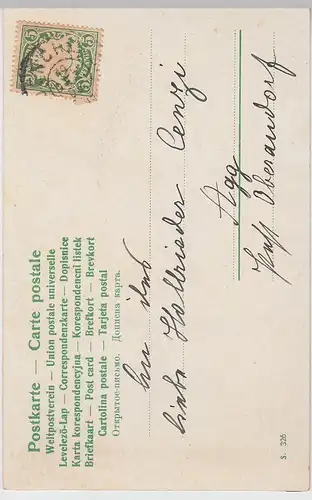 Postkarte — Carte postale
Weltpostverein — Union postale universelle
Levelező-Lap — Correspondenzkarte — Dopisnice
Karta korespondencyjna — Korespondenční lístek
Briefkaart — Post card — Brefkort — Brevkort
Cartolina postale — Tarjeta postal
Открытое-письмо. Дописна карта.
An das
liebe Hallrieder Cenzi
Agg
Post Oberaudorf
S. 326
5 5